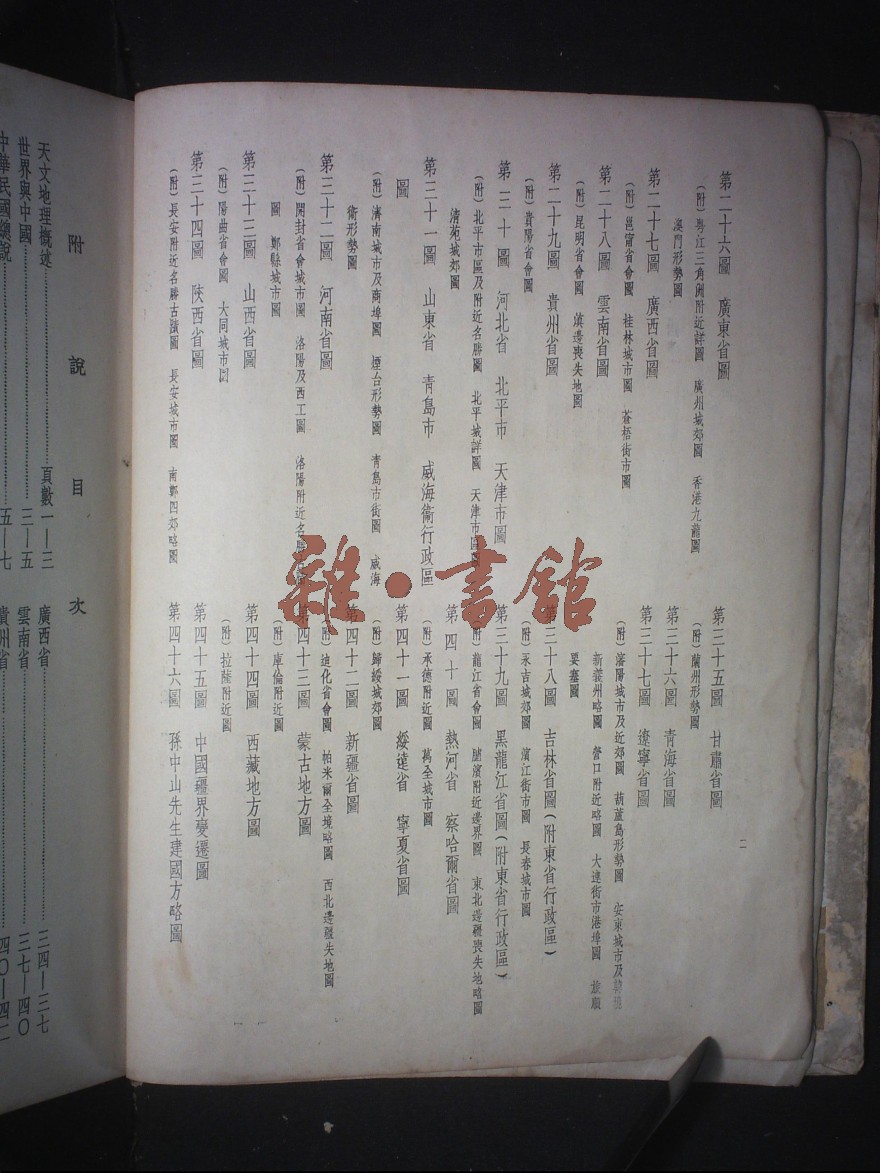 第二十六圖　廣東省圖
（附）粵江三角洲附近詳圖　廣州城郊圖　香港九龍圖
澳門形勢圖
第二十七圖　廣西省圖
（附）邕甯省會圖　桂林城市圖　蒼梧街市圖
第二十八圖　雲南省圖
（附）昆明省會圖　滇邊喪失地圖
第二十九圖　貴州省圖
（附）貴陽省會圖
第三十圖　河北省　北平市　天津市圖
（附）北平市區及附近名勝圖　北平城詳圖　天津市區圖
清苑城郊圖
第三十一圖　山東省　青島市　威海衞行政區
圖
（附）濟南城市及商埠圖　煙台形勢圖　青島市街圖　威海
衞形勢圖
第三十二圖　河南省圖
（附）開封省會城市圖　洛陽及西工圖　洛陽附近名勝
圖　鄭縣城市圖
第三十三圖　山西省圖
（附）陽曲省會圖　大同城市圖
第三十四圖　陝西省圖
（附）長安附近名勝古蹟圖　長安城市圖　南鄭四郊略圖
第三十五圖　甘肅省圖
（附）蘭州形勢圖
第三十六圖　青海省圖
第三十七圖　遼寧省圖
（附）瀋陽城市及近郊圖　葫蘆島形勢圖　安東城市及
新義州略圖　營口附近略圖　大連街市港埠圖　旅順
要塞圖
第三十八圖　吉林省圖（附東省行政區）
（附）永吉城郊圖　濱江街市圖　長春城市圖
第三十九圖　黑龍江省圖（附東省行政區）
（附）龍江省會圖　臚濱附近邊界圖　東北邊疆喪失地略圖
第四十圖　熱河省　察哈爾省圖
（附）承德附近圖　萬全城市圖
第四十一圖　綏遠省　寧夏省圖
（附）歸綏城郊圖
第四十二圖　新疆省圖
（附）迪化省會圖　帕米爾全境略圖　西北邊疆失地圖
第四十三圖　蒙古地方圖
（附）庫倫附近圖
第四十四圖　西藏地方圖
（附）拉薩附近圖
第四十五圖　中國疆界變遷圖
第四十六圖　孫中山先生建國方略圖
二
附說目次
天文地理概述…………頁數一—三
世界與中國…………三—五
中華民國總說…………五—七
廣西省…………三四—三七
雲南省…………三七—四〇
貴州省…………四〇—四二
雜·書館